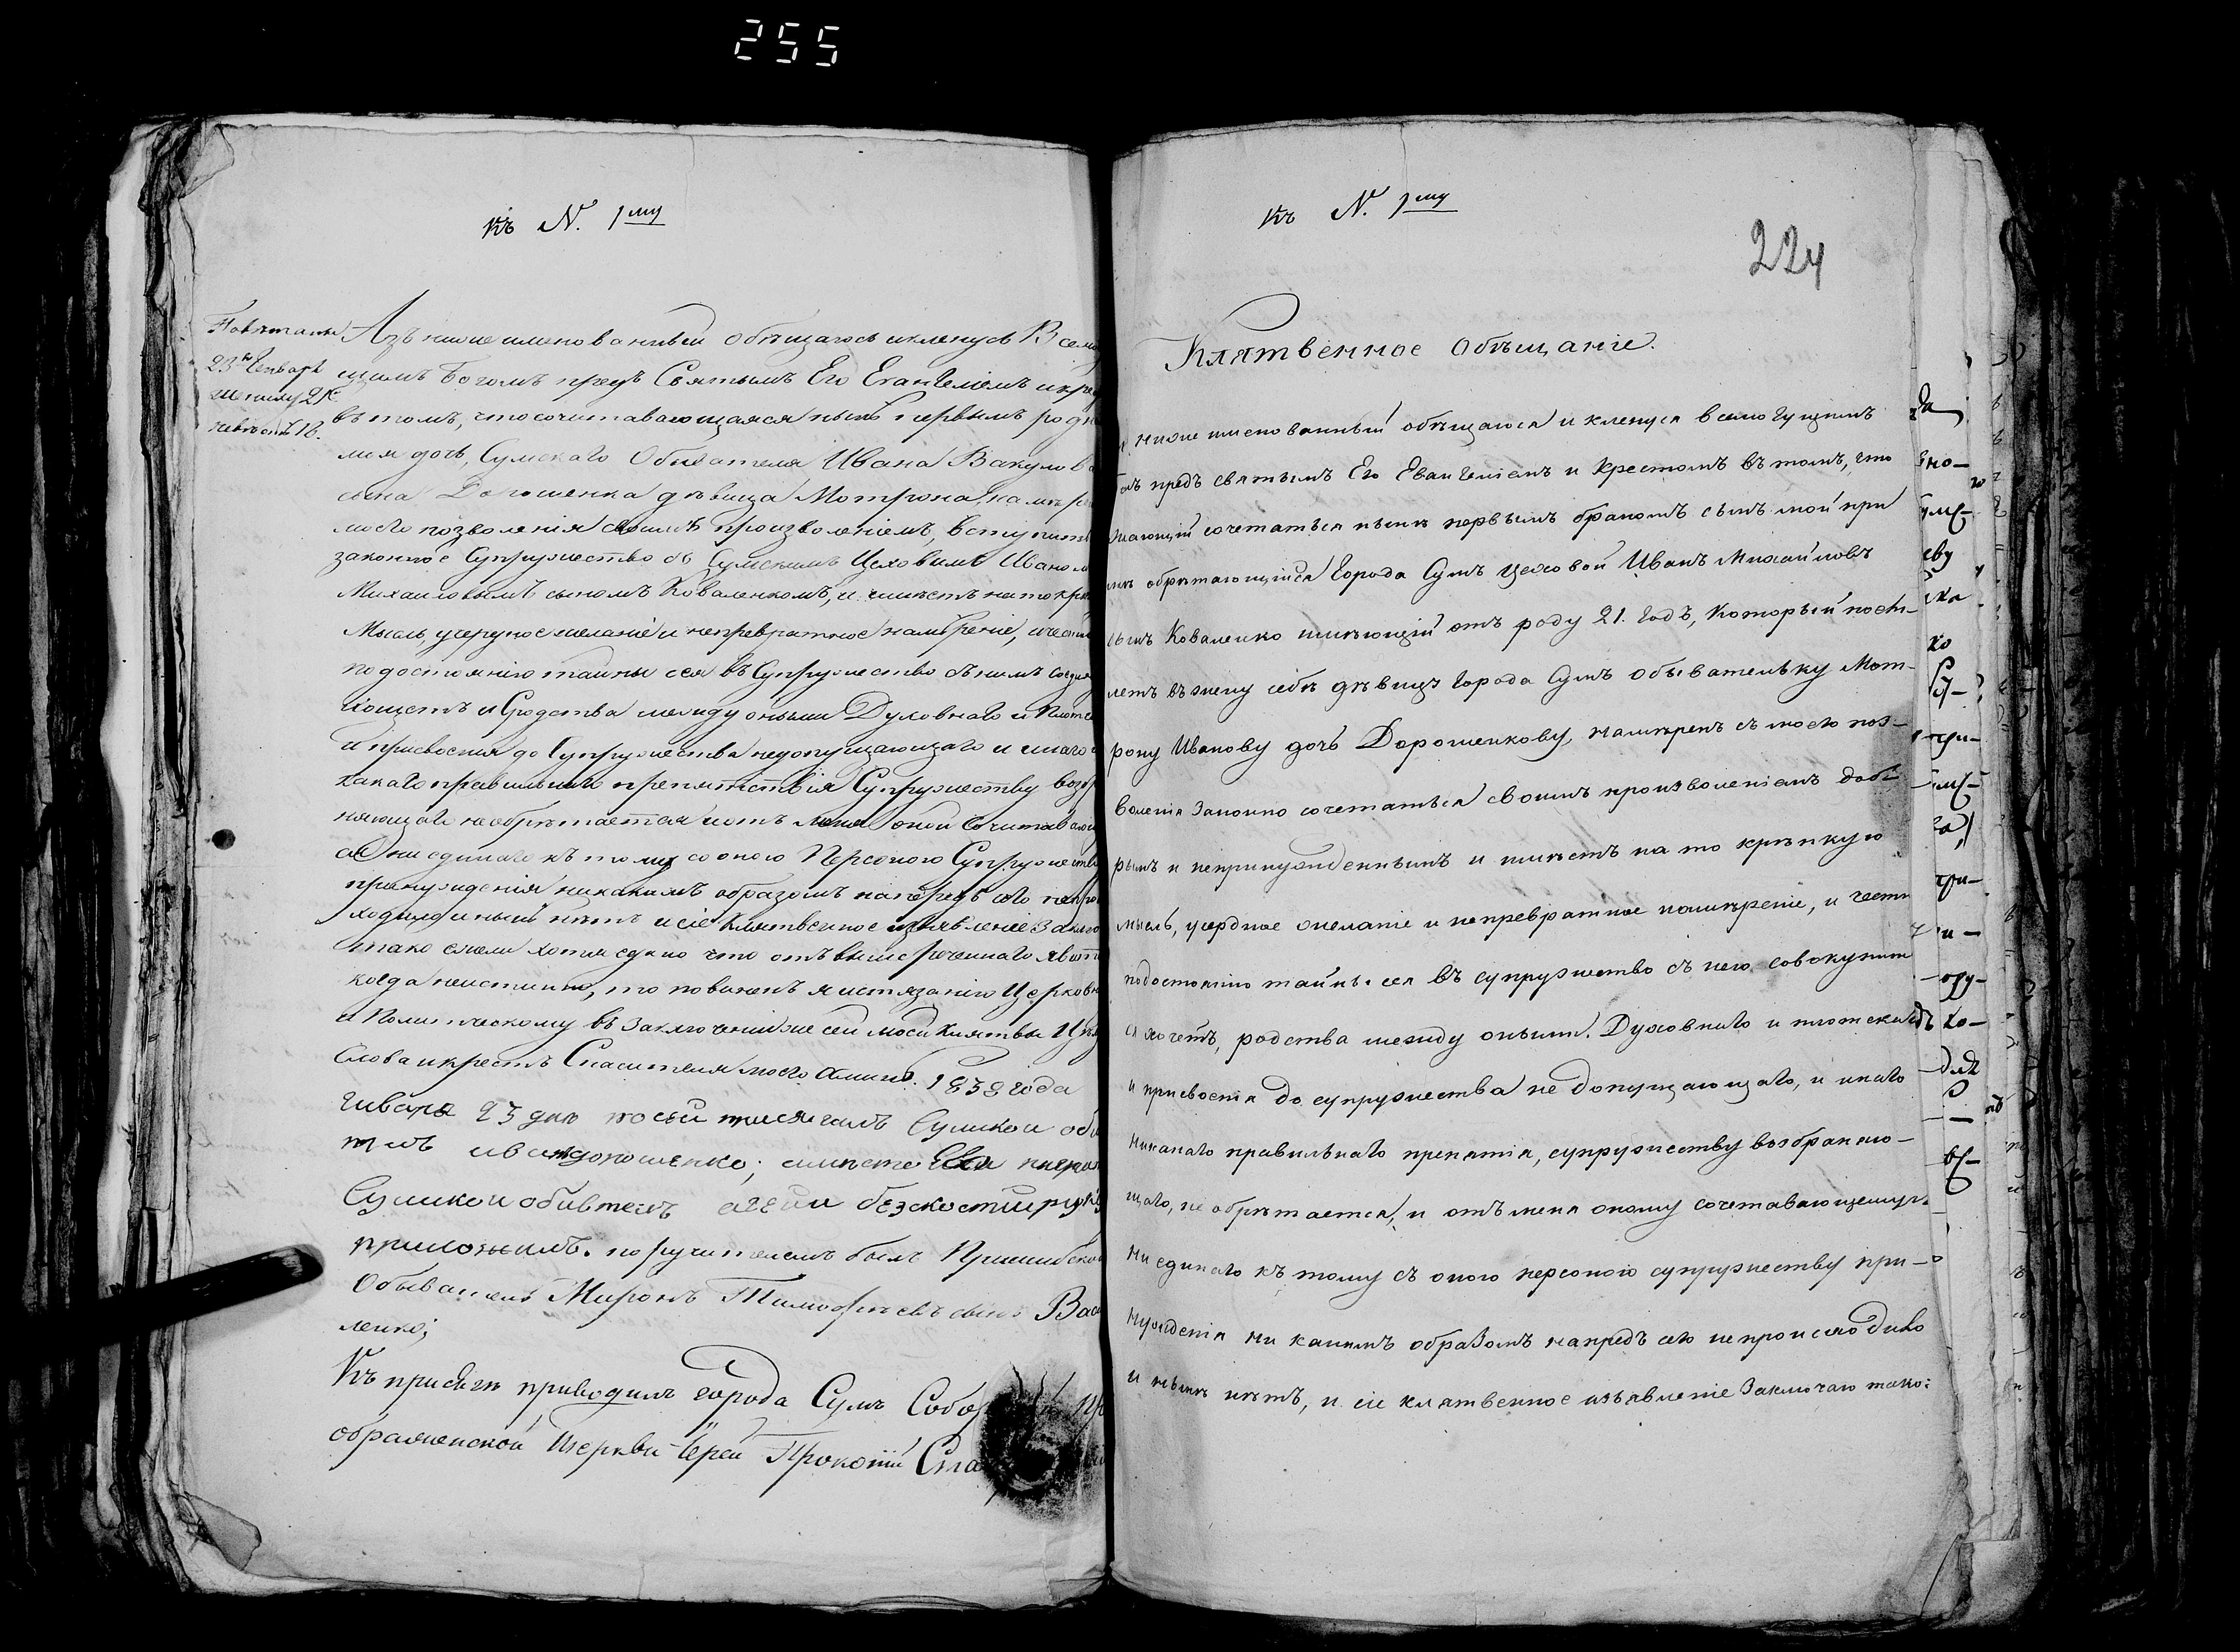 255
къ N. 1му
23го Генваря
жениху 21
невѣстѣ 18.
Азъ нижеименованный обѣщаюсь и кленусь Всемо
щимъ Богомъ предъ Святымъ Его Евангелiемъ и кре
въ томъ, что сочитавающаяся нынѣ первымъ
моя дочь, Сумскаго Обывателя Ивана Вакулова
сына Дорошенка дѣвица Мотрона намѣре
моего позволенiя своимъ произволенiемъ, вступить
законное Супружество съ Сумскимъ Цеховымъ Иваном
Михайловымъ сыномъ Коваленкомъ, и имѣетъ на то крѣ
Мысль, усердное желанiе и непревратное намѣренiе, и чест
по достоянiю тайны сея въ Супружество съ нимъ соеди
хощетъ и Сродства между оными Духовнаго и Плотс
и присвоенiя до Супружества недопущающаго и инаго
какаго правильнаго препятствiя Супружеству возбр
няющаго необрѣтается и отъ меня оной Сочитавающ
ся ни единаго къ тому со оною Персоною Супружеств
принужденiя никакимъ образомъ напередъ сего непро
ходило и нынѣ нѣтъ и сiе Клятвенное изъявленiе Заклю
тако ежели хотя едино что отъ вышереченнаго явит
когда неистинно, то повиненъ я истязанiю Церковн
и Политическому въ заключенiи же сей моей Клятвы Цѣл
Слова и крестъ Спасителя моего Аминь. 1838 года
Генваря 23 дня по сей присягалъ Сумской об
Сумской
приложилъ. поручителемъ былъ
Обыватель Миронъ Тимофѣевъ сынъ Васи
ленко;
Къ присягѣ приводилъ города Сумъ Собо
ображенской Церкви Iерей Прокопiй Ста
Къ N. 1му
224
Клятвенное Обѣщанiе.
я нижеименованный обѣщаюся и кленуся всемогущимъ
Богомъ предъ святымъ Его Евангелiемъ и Крестомъ въ томъ, что
желающiй сочетаться нынѣ первымъ бракомъ сынъ мой при
мнѣ обрѣтающiйся Города Сумъ цеховой Иванъ Михайловъ
сынъ Коваленко имѣющiй отъ роду 21. годъ, который поем-
летъ въ жену себѣ дѣвицу города Сумъ обывательку Мот-
рону Иванову дочь Дорошенкову, намѣренъ съ моего поз-
воленiя Законно сочетаться своимъ произволенiемъ доб-
рымъ и непринужденнымъ и имѣетъ на то крѣпкую
мысль, усердное желанiе и непревратное намѣренiе, и честн
по достоянiю тайны сея въ супружество съ нею совокупит
ся хочетъ, родства между оными Духовнаго и плотскаго
и присвоенiя до супружества не допущающаго, и инаго
никакаго правильнаго препятiя, супружеству возбраняю-
щаго, не обрѣтается, и отъ меня оному сочетавающемуся
ни единаго къ тому съ оною персоною супружеству при-
нужденiя ни какимъ образомъ напредъ сего не происходило
и нынѣ нѣтъ, и сiе клятвенное изъявленiе Заключаю тако: